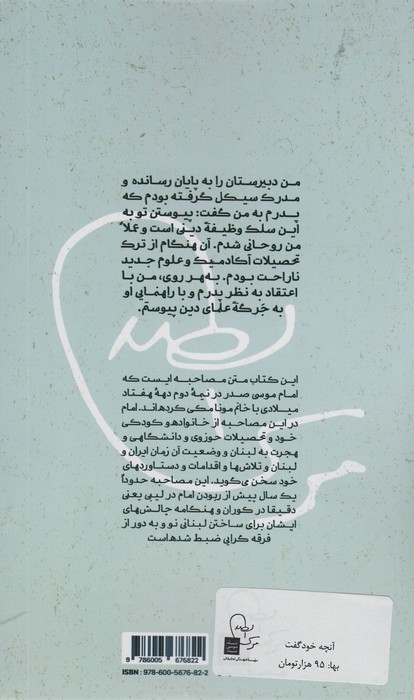 من دبیرستان را به پایان رسانده و
مدرک سیکل گرفته بودم که
پدرم به من گفت: پیوستن تو به
این سلک وظیفهٔ دینی است و عملاً
من روحانی شدم. آن هنگام از ترک
تحصیلات آکادمیک و علوم جدید
ناراحت بودم. به‌هر روی، من با
اعتقاد به نظر پدرم و با راهنمایی او
به جَرگهٔ علمای دین پیوستم.
این کتاب متن مصاحبه ایست که
امام موسی صدر در نیمهٔ دوم دههٔ هفتاد
میلادی با خانم مونا مکی کرده‌اند.
در این مصاحبه از خانواده و کودکی
خود و تحصیلات حوزوی و دانشگاهی و
هجرت به لبنان و وضعیت آن زمان ایران و
لبنان و تلاش‌ها و اقدامات و دستاوردهای
خود سخن می‌گوید. این مصاحبه حدوداً
یک سال پیش از ربودن امام در لیبی یعنی
دقیقا در کوران و هنگامه چالش‌های
ایشان برای ساختن لبنانی نو و به دور از
فرقه گرایی ضبط شده‌است
9 786005 676822
ISBN: 978-600-5676-82-2
آنچه خود گفت
بها: ۹۵ هزارتومان